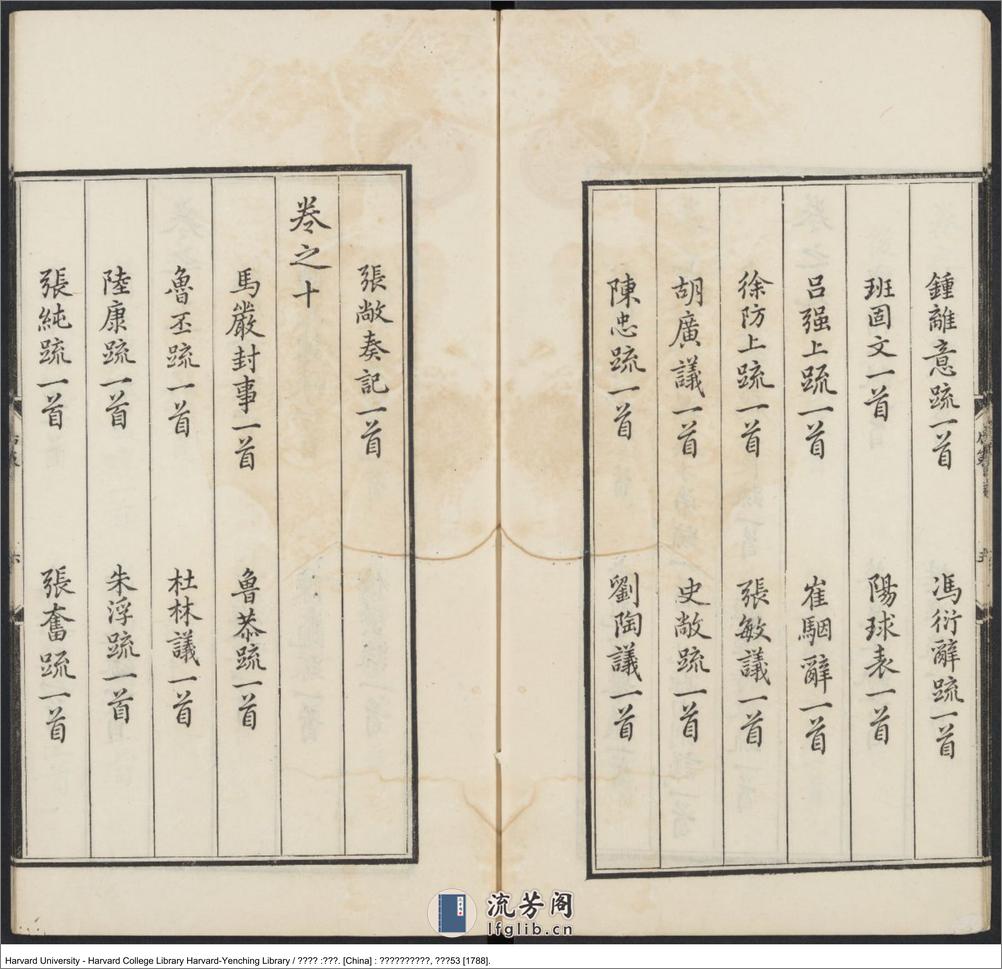 鍾離意疏一首
馮衍辭疏一首
班固文一首
陽球表一首
呂强上疏一首
崔駰辭一首
徐防上疏一首
張敏議一首
胡廣議一首
史敞疏一首
陳忠疏一首
劉陶議一首
張敞奏記一首
卷之十
馬嚴封事一首
魯恭疏一首
魯丕疏一首
杜林議一首
陸康疏一首
朱浮疏一首
張純疏一首
張奮疏一首
流芳阁
lfglib.cn
Harvard University - Harvard College Library Harvard-Yenching Library / ???? :???. [China] : ??????????, ???53 [1788].